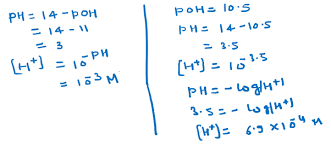 PH = 14 - POH
= 14 - 11
= 3
[H+] = 10^-PH
= 10^-3 M
POH = 10.5
PH = 14 - 10.5
= 3.5
[H+] = 10^-3.5
PH = - log[H+]
3.5 = - log[H+]
[H+] = 6.9 × 10^-4 M